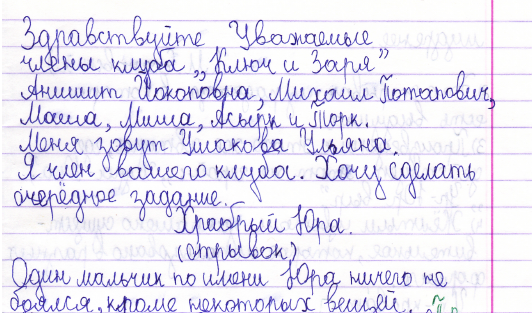 Здравствуйте Уважаемые
члены клуба „Ключ и Заря”
Анишит Йокоповна, Михаил Потапович,
Маша, Миша, Асырк и Торк.
Меня зовут Ушакова Ульяна.
Я член вашего клуба. Хочу сделать
очерёдное задание.
Храбрый Юра.
(отрывок)
Один мальчик по имени Юра ничего не
боялся, кроме некоторых вещей.